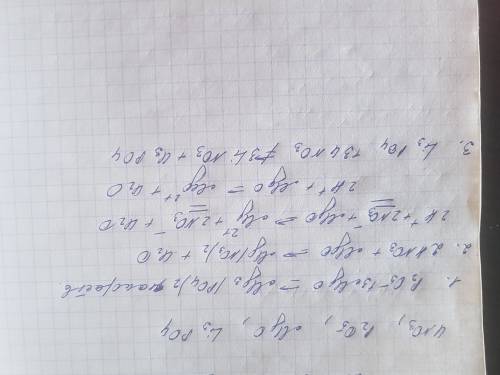 HNO₃, P₂O₅, MgO, Li₃PO₄
1. P₂O₅ + 3MgO = Mg₃(PO₄)₂
2. 2HNO₃ + MgO = Mg(NO₃)₂ + H₂O
2H⁺ + 2NO₃⁻ + MgO = Mg²⁺ + 2NO₃⁻ + H₂O
2H⁺ + MgO = Mg²⁺ + H₂O
3. Li₃PO₄ + 3HNO₃ ≠ 3LiNO₃ + H₃PO₄